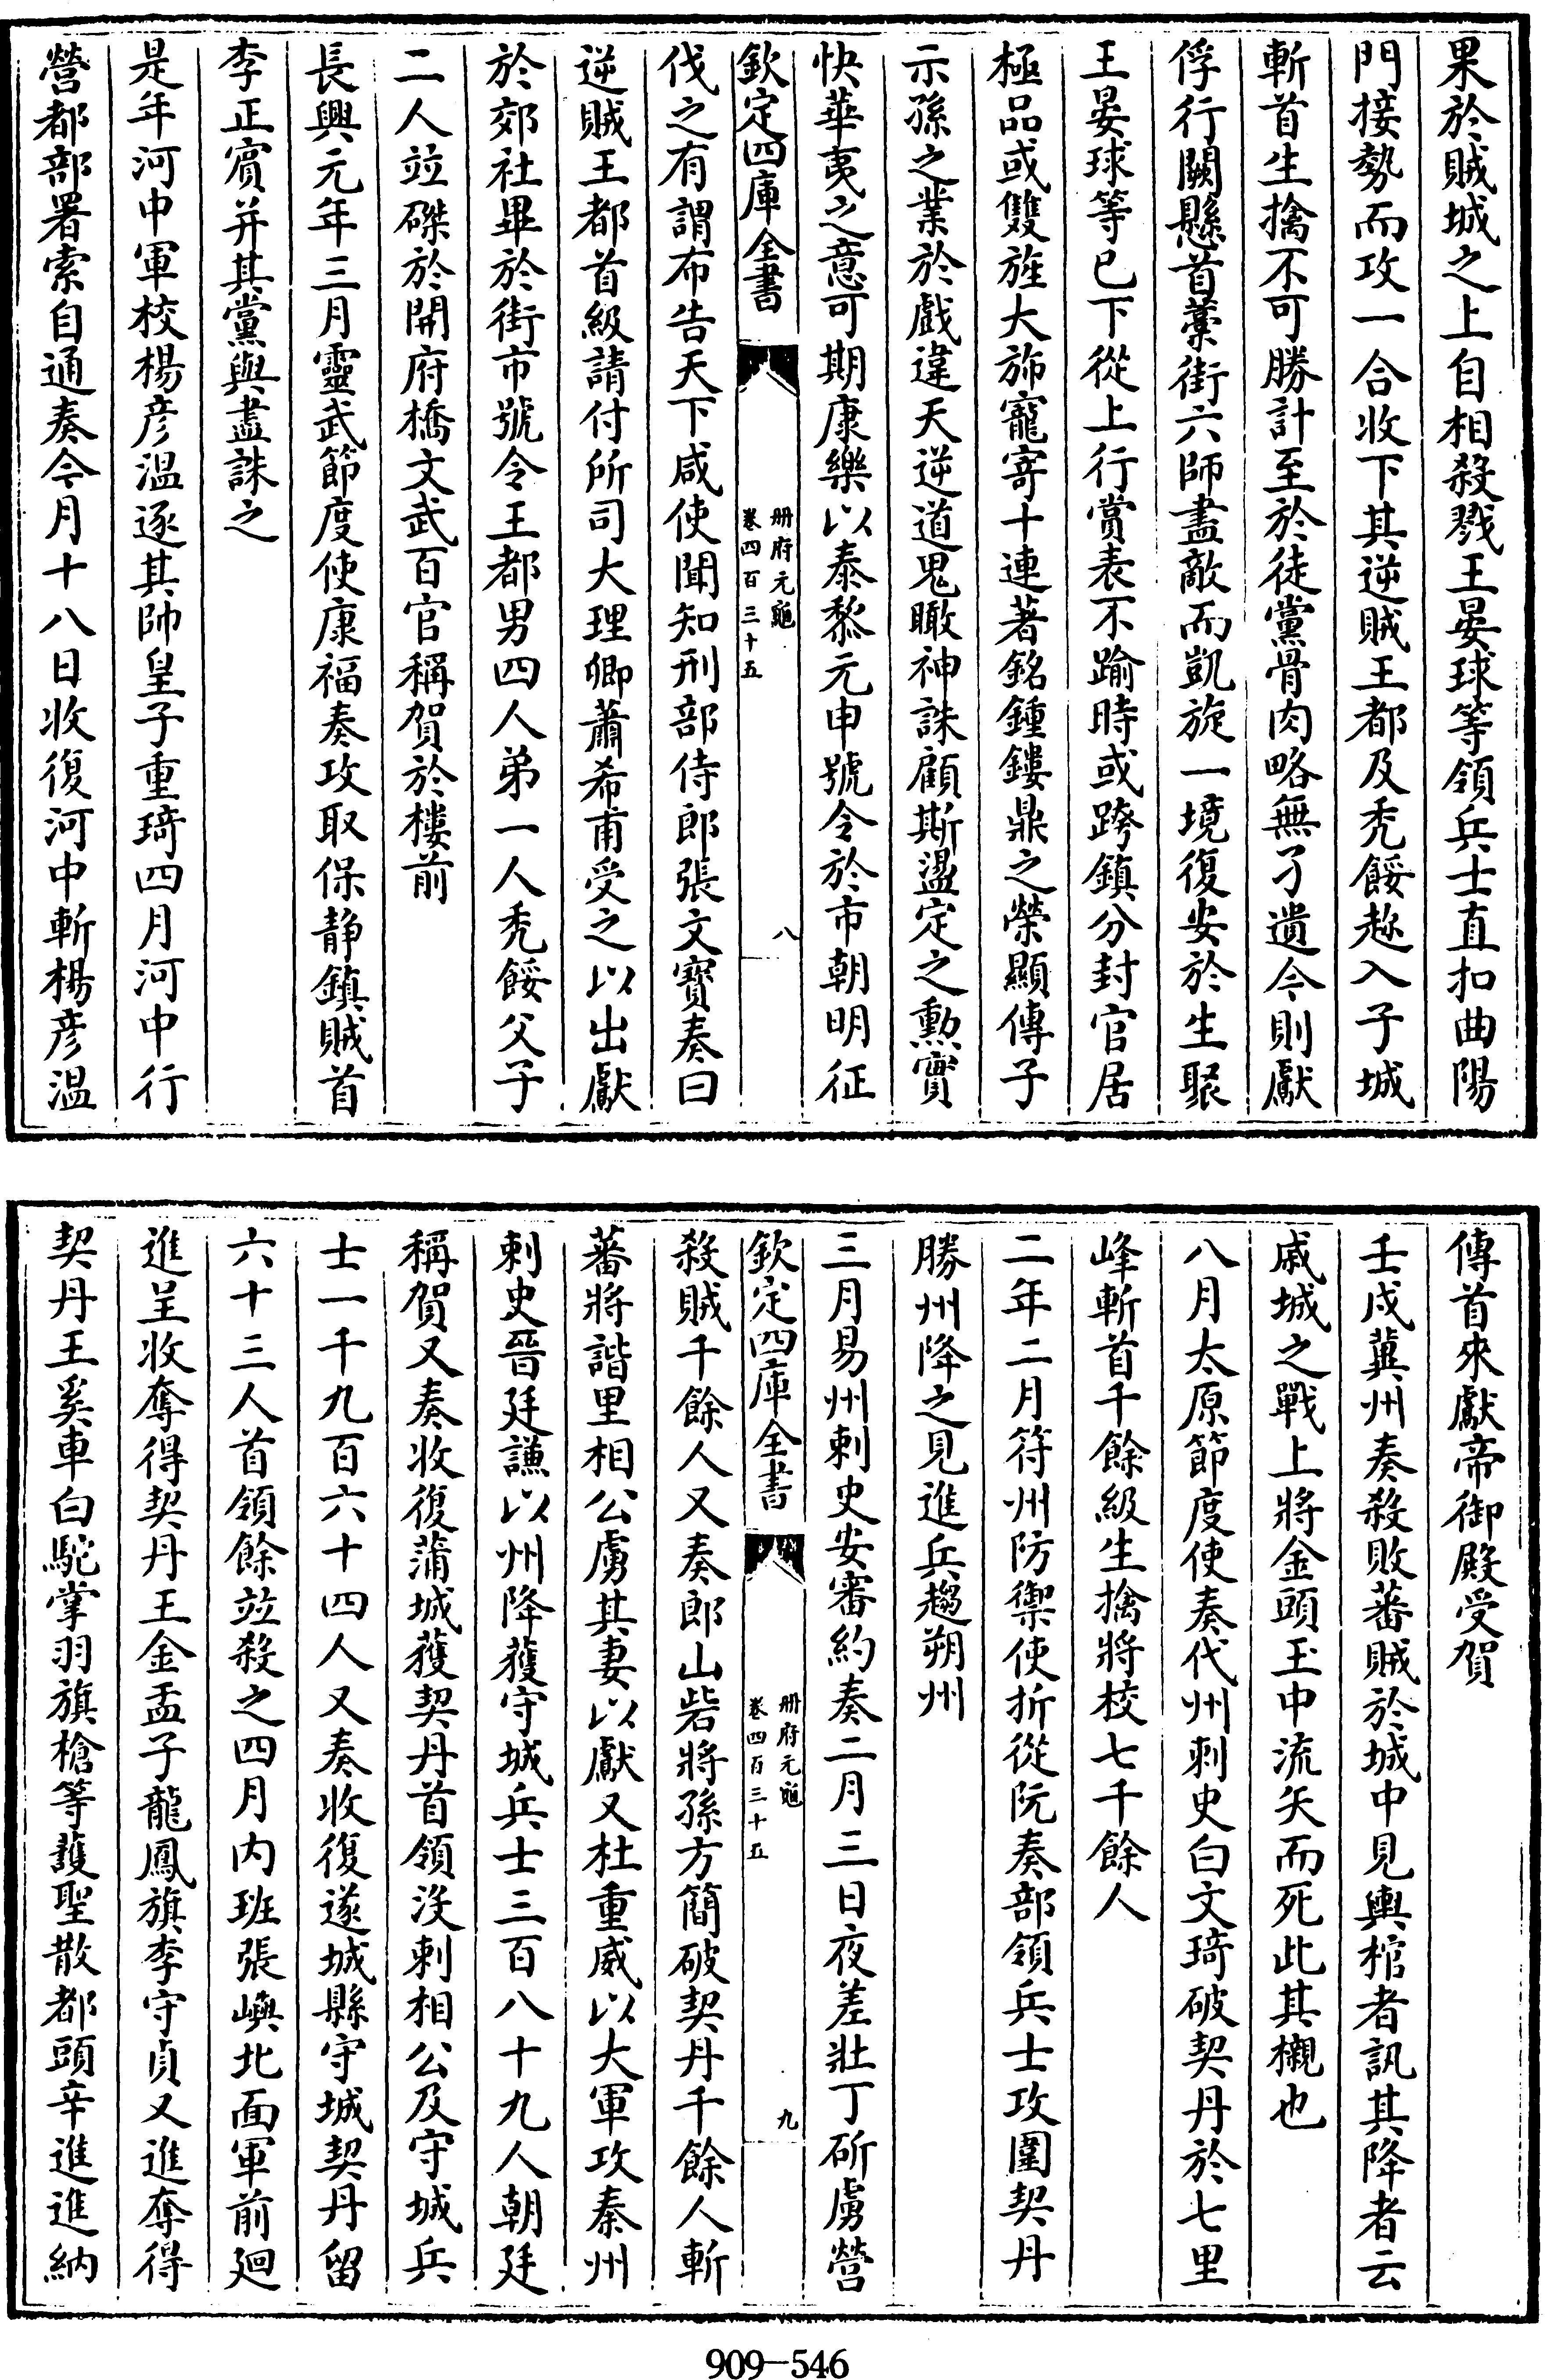 果於賊城之上自相殺戮王晏球等領兵士直扣曲陽
門接勢而攻一合收下其逆賊王都及禿餒趂入子城
斬首生擒不可勝計至於徒黨骨肉略無孑遺今則獻
俘行闕懸首藁街六師盡敵而凱旋一境復安於生聚
王晏球等已下從上行賞表不踰時或跨鎮分封官居
極品或雙旌大斾寵寄十連著銘鍾鏤鼎之榮顯傳子
示孫之業於戲違天逆道鬼瞰神誅顧斯盪定之勲實
快華夷之意可期康樂以泰黎元申號令於市朝明征
欽定四庫全書
冊府元龜
卷四百三十五
八
伐之有謂布告天下咸使聞知刑部侍郎張文寶奏曰
逆賊王都首級請付所司大理卿蕭希甫受之以出獻
於郊社畢於街市號令王都男四人弟一人禿餒父子
二人竝磔於開府橋文武百官稱賀於樓前
長興元年三月靈武節度使康福奏攻取保靜鎮賊首
李正賓并其黨與盡誅之
是年河中軍校楊彥溫逐其帥皇子重琦四月河中行
營都部署索自通奏今月十八日收復河中斬楊彥溫
傳首來獻帝御殿受賀
壬戌冀州奏殺敗蕃賊於城中見輿棺者訊其降者云
戚城之戰上將金頭王中流矢而死此其櫬也
八月太原節度使奏代州刺史白文琦破契丹於七里
峰斬首千餘級生擒將校七千餘人
二年二月符州防禦使折從阮奏部領兵士攻圍契丹
勝州降之見進兵趨朔州
三月易州刺史安審約奏二月三日夜差壯丁斫虜營
欽定四庫全書
冊府元龜
卷四百三十五
九
殺賊千餘人又奏郎山砦將孫方簡破契丹千餘人斬
蕃將諧里相公虜其妻以獻又杜重威以大軍攻秦州
刺史晉廷謙以州降獲守城兵士三百八十九人朝廷
稱賀又奏收復蒲城獲契丹首領沒刺相公及守城兵
士一千九百六十四人又奏收復遂城縣守城契丹留
六十三人首領餘竝殺之四月內班張嶼北面軍前廻
進呈收奪得契丹王金盂子龍鳳旗李守貞又進奪得
契丹王奚車白駝掌羽旗槍等護聖散都頭辛進進納
909-546